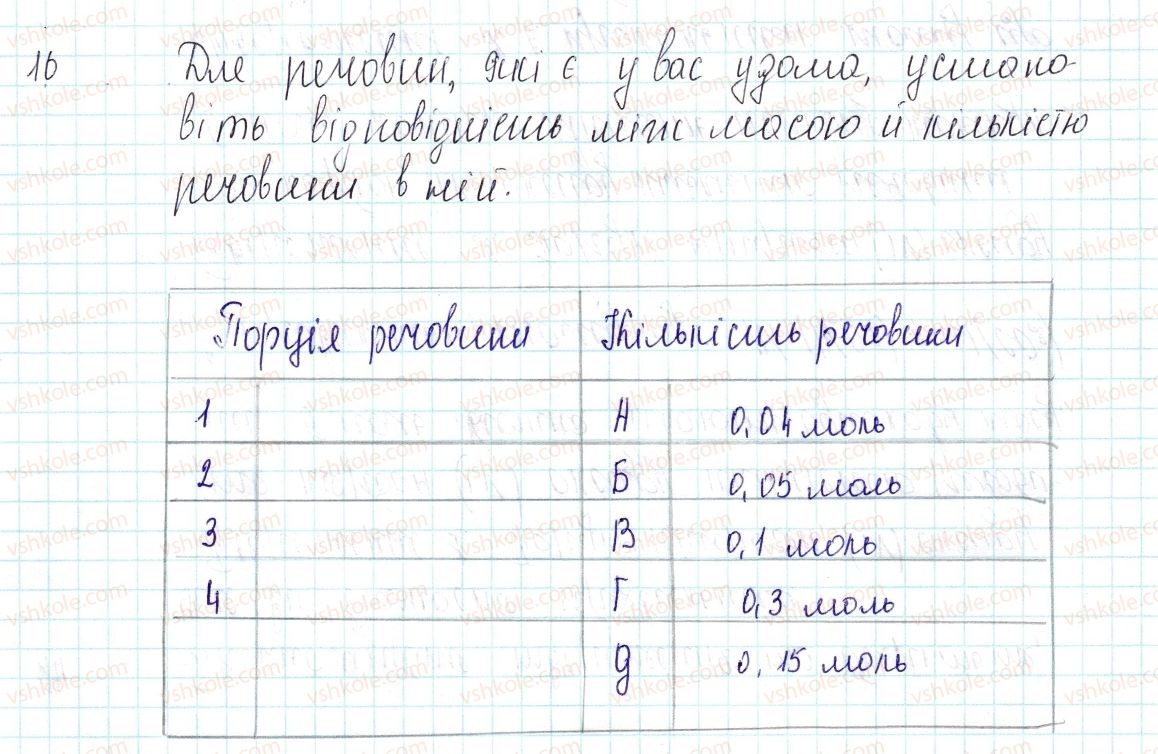 16 Для речовин, які є у вас удома, устано-
віть відповідність між масою й кількістю
речовини в ній.
Порція речовини Кількість речовини
1 А 0,04 моль
2 Б 0,05 моль
3 В 0,1 моль
4 Г 0,3 моль
Д 0,15 моль